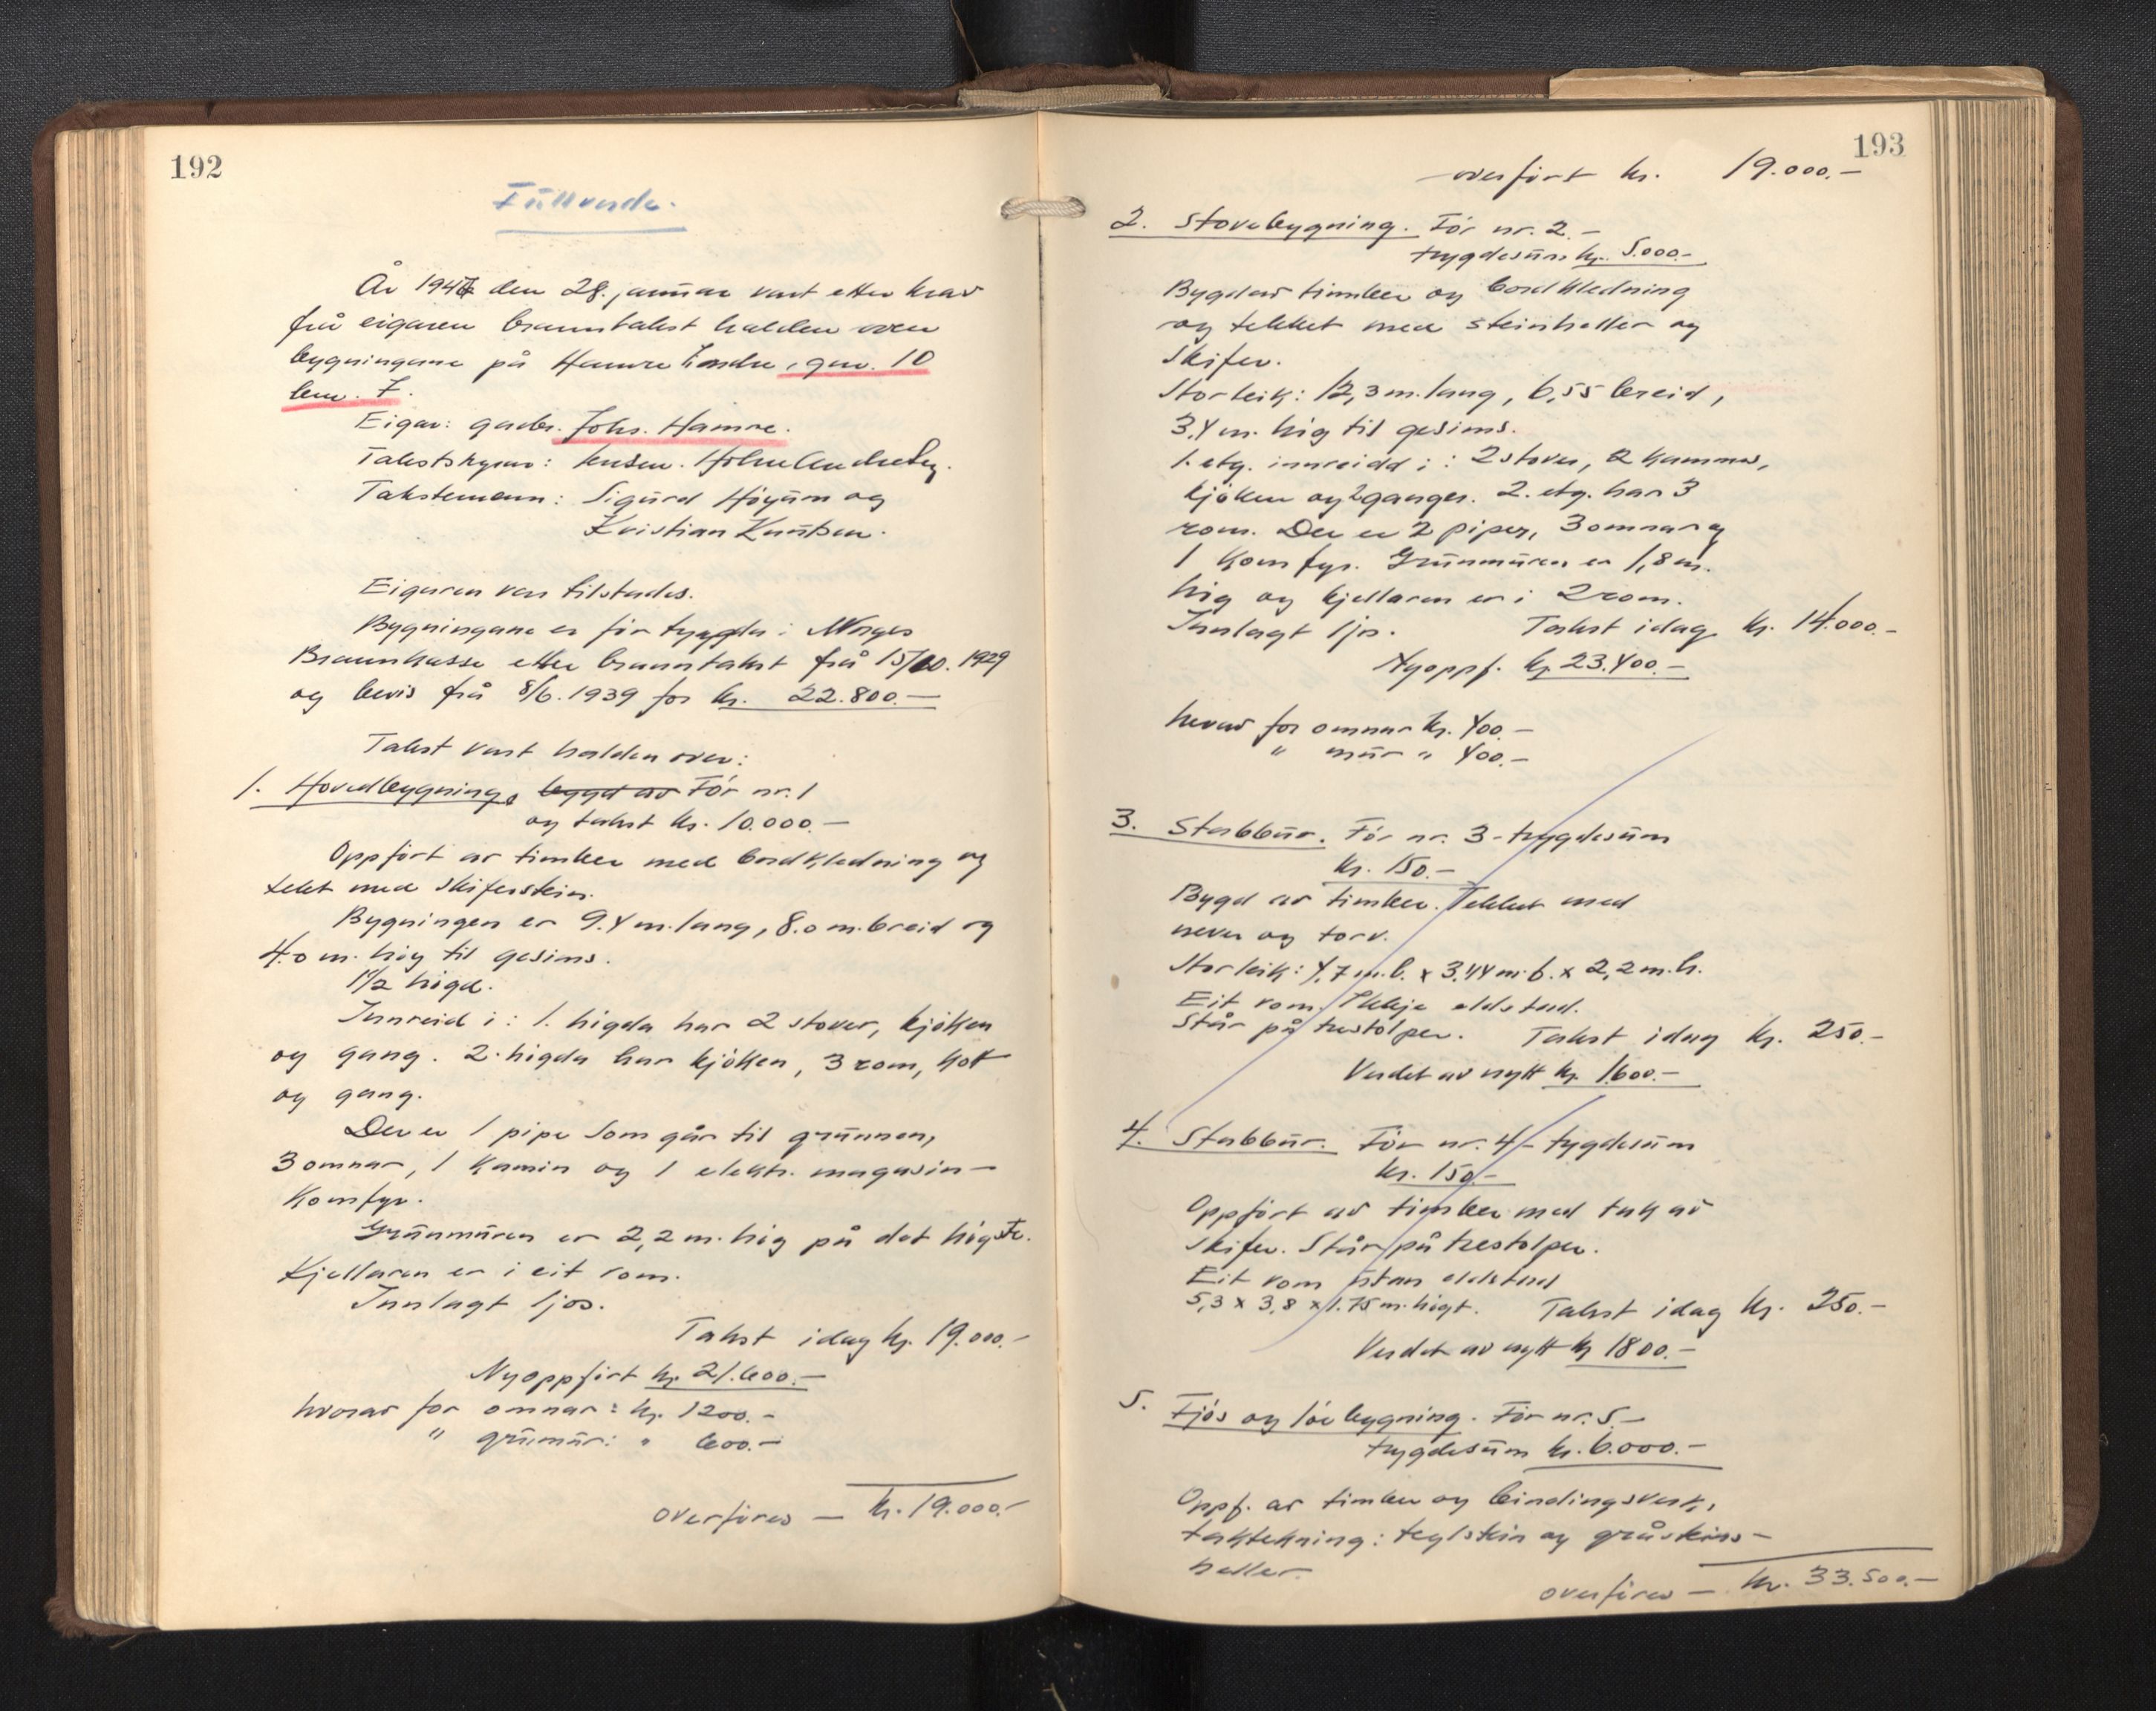 192
Fullverde.
År 1947 den 28. januar vart etter krav
frå eigaren branntakst halden over
bygningane på Hamre Indre, gnr. 10
bnr. 7.
Eigar: gardbr. Johs. Hamre.
Takststyrar: lensm.
Takstemenn: Sigurd Höyum og
Kristian Knutsen.
Eigaren var tilstades.
Bygningane er för trygda i Norges
Brannkasse etter branntakst frå 15/10. 1929
og bevis frå 8/6. 1939 for kr. 22.800.—
Takst vart halden over:
1. Hovedbygning, bygd av För nr. 1
og takst kr. 10.000.—
Oppfört av timber med bordkledning og
tekt med skiferstein.
Bygningen er 9.4 m. lang, 8.0 m. breid og
4.0 m. hög til gesims.
1½ högd.
Innreid i: 1. högda har 2 stover, kjöken
og gang. 2. högda har kjöken, 3 rom, kot
og gang.
Der er 1 pipe som går til grunnen,
3 omnar, 1 kamin og 1 elektr. magasin-
komfyr.
Grunmuren er 2,2 m. hög på det högste.
Kjellaren er i eit rom.
Innlagt ljos.
Takst idag kr. 19.000.—
Nyoppfört kr. 21.600.—
hvorav for omnar: kr. 1200.—
" grumur: " 600.—
overföres — kr. 19.000.—
193
overfört kr. 19.000.—
2. Stovebygning. För nr. 2.—
trygdesum kr. 5.000.—
Bygd av timber og bordkledning
og tekket med steinheller og
skifer.
Storleik: 12,3 m. lang, 6,55 breid,
3.4 m. hög til gesims.
1. etg. innreidd i: 2 stover, 2 kammer,
kjöken og 2 ganger. 2. etg. har 3
rom. Der er 2 piper, 3 omnar og
1 komfyr. Grunmuren er 1,8 m.
hög og kjellaren er i 2 rom.
Innlagt ljos. Takst idag kr. 14.000.—
Nyoppf. kr. 23.400.—
herav for omnar kr. 400.—
" mur " 400.—
3. Stabbur. För nr. 3 - trygdesum
kr. 150.—
Bygd av timber. Tekket med
never og torv.
Storleik: 4,7 m. l. x 3.44 m. b. x 2,2 m. h.
Eit rom. Ikkje eldstad.
Står på trestolper. Takst idag kr. 250.—
Verdet av nytt kr. 1600.—
4. Stabbur. För nr. 4 - tygdesum
kr. 150.—
Oppfört av timber med tak av
skifer. Står på trestolper.
Eit rom utan eldstad
5,3 x 3,8 x 1.75 m. högt. Takst idag kr. 250.—
Verdet av nytt kr 1800.—
5. Fjös og löebygning. För nr. 5.—
trygdesum kr. 6.000.—
Oppf. av timber og bindingsverk,
taktekning: teglstein og gråsteins-
heller.
overföres — kr. 33.500.—